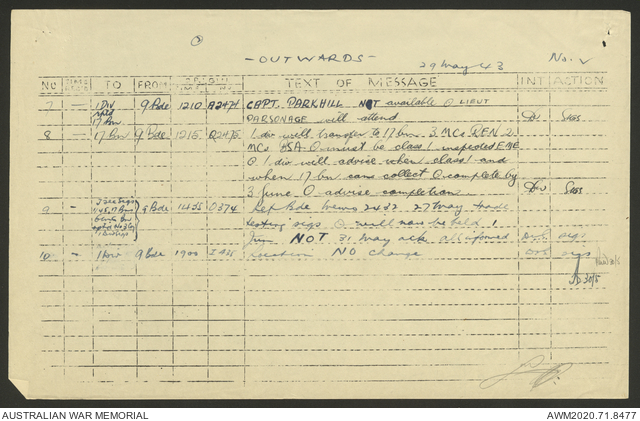 - OUTWARDS -
29 May 43
No. V
NO TO FROM TEXT OF MESSAGE INT ACTION
7 — 1 Div 9 Bde 1210 A2474 CAPT. PARKHILL NOT available O LIEUT
17 Bn PARSONAGE will attend Sigs
8 — 17 Bn 9 Bde 1215 Q2475 1 div will transfer to 17 bn 3 MCs REN 2
MCs BSA O must be class 1 inspected EME
O 1 div will advise when class 1 and
when 17 bn can collect O complete by
3 June O advise completion Sigs
9 9 Bde 1455 O374 Ref Bde 2432 27 May trade
testing sigs O will now be held 1
Jun NOT 31 May ack all informed sigs
10 - 1 Div 9 Bde 1900 location NO change sigs
30/5
AUSTRALIAN WAR MEMORIAL
AWM2020.71.8477